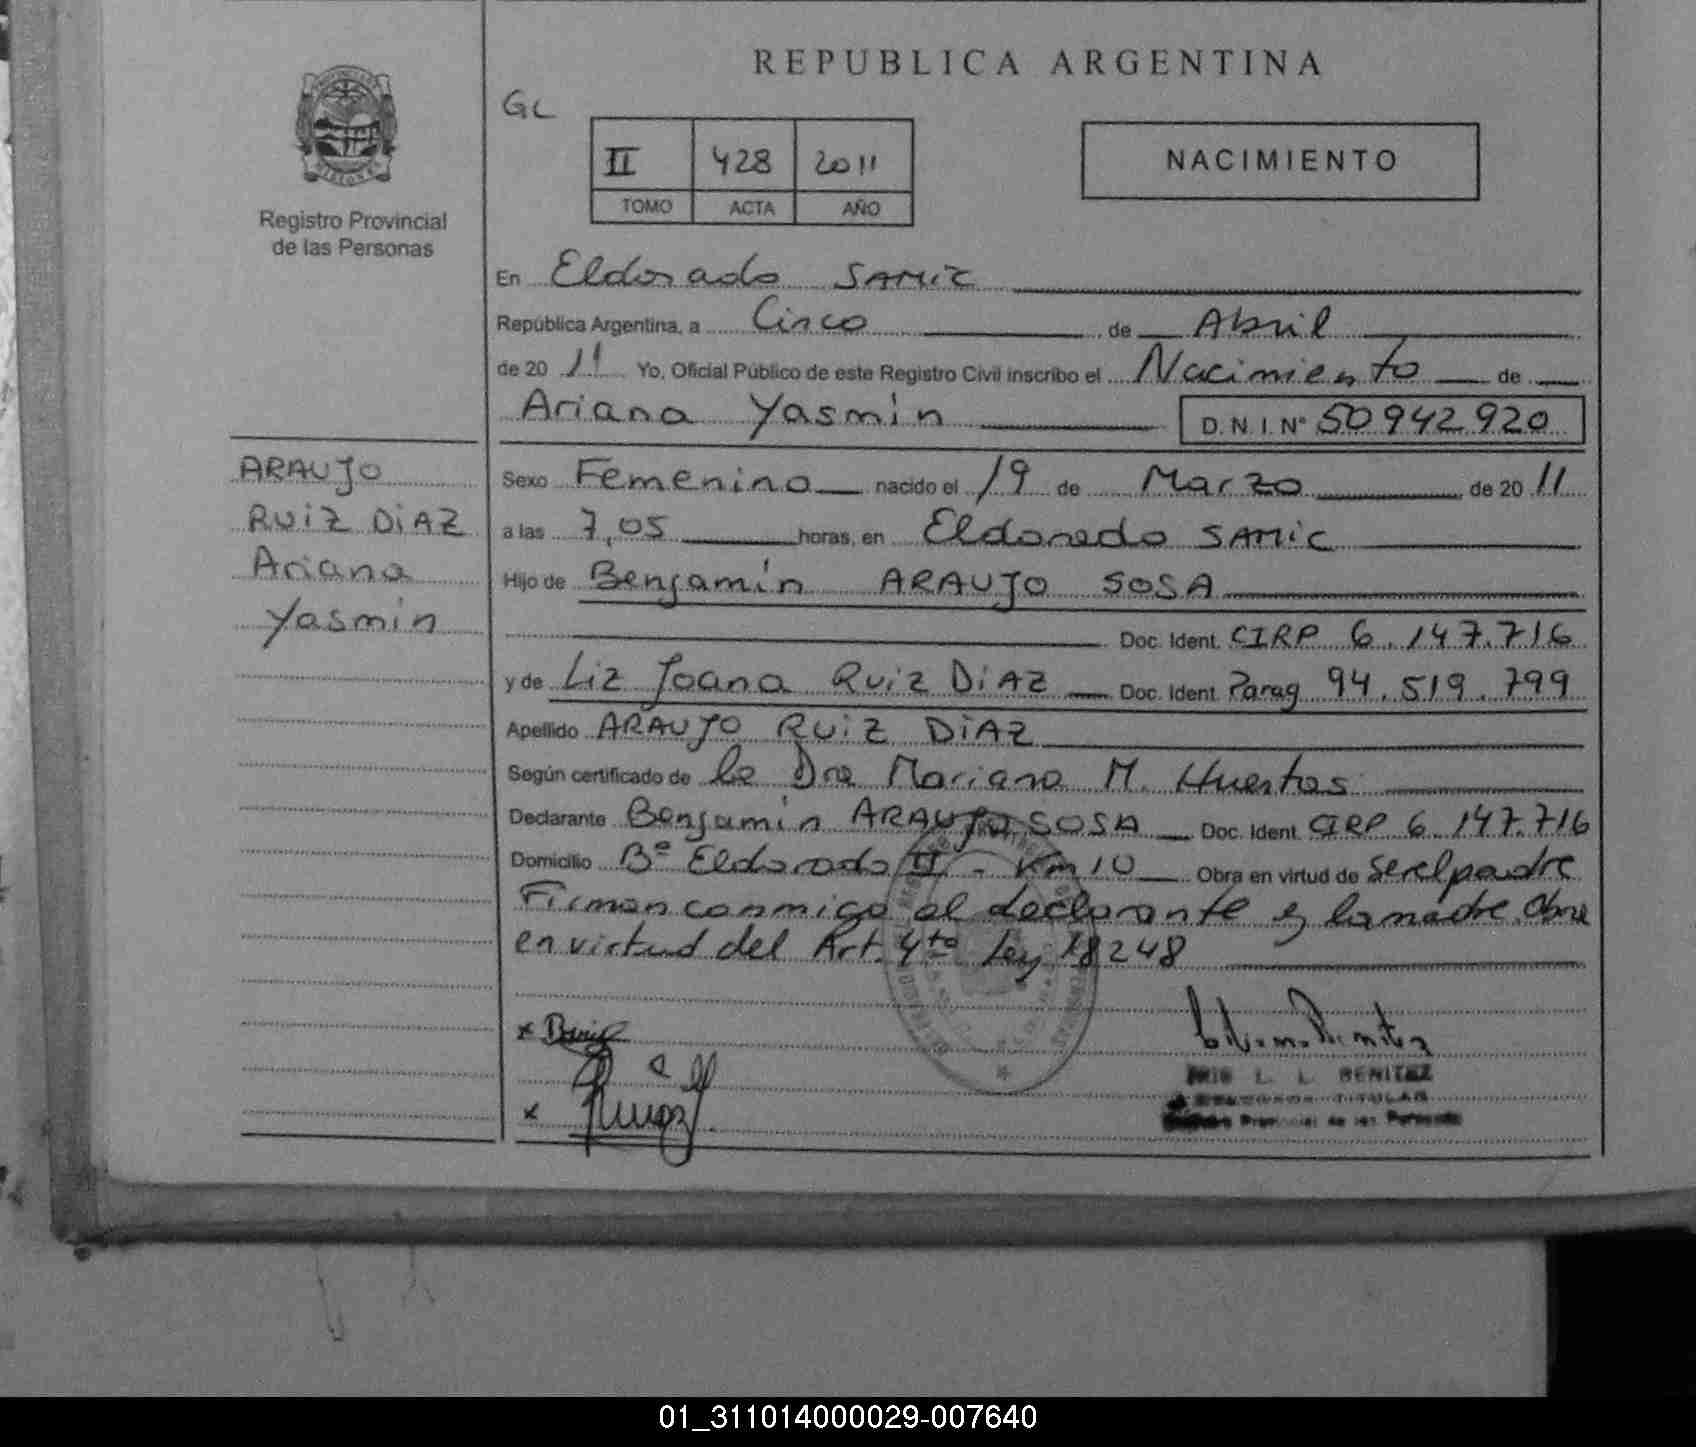 REPUBLICA ARGENTINA
GL
II 428 2011
TOMO ACTA AÑO
NACIMIENTO
Registro Provincial
de las Personas
En Eldorado SAMIC
República Argentina, a Cinco de Abril
de 20 11 Yo, Oficial Público de este Registro Civil inscribo el Nacimiento de
Ariana Yasmin D.N.I. N° 50 942 920
ARAUJO
RUIZ DIAZ
Ariana
Yasmin
Sexo Femenino nacido el 19 de Marzo de 20 11
a las 7,05 horas, en Eldorado SAMIC
Hijo de Benjamín ARAUJO SOSA
Doc. Ident. CIRP 6.147.716
y de Liz Joana RUIZ DIAZ Doc. Ident. Parag 94.519.799
Apellido ARAUJO RUIZ DIAZ
Según certificado de la Dra Mariana M. Huertas
Declarante Benjamín ARAUJO SOSA Doc. Ident. CIRP 6.147.716
Domicilio B° Eldorado II - Km 10 Obra en virtud de Ser el padre
Firman conmigo el declarante y la madre. Obra
en virtud del Art. 4to Ley 18248
L. L. BENITEZ
TITULAR
Provincial de las Personas
01_311014000029-007640